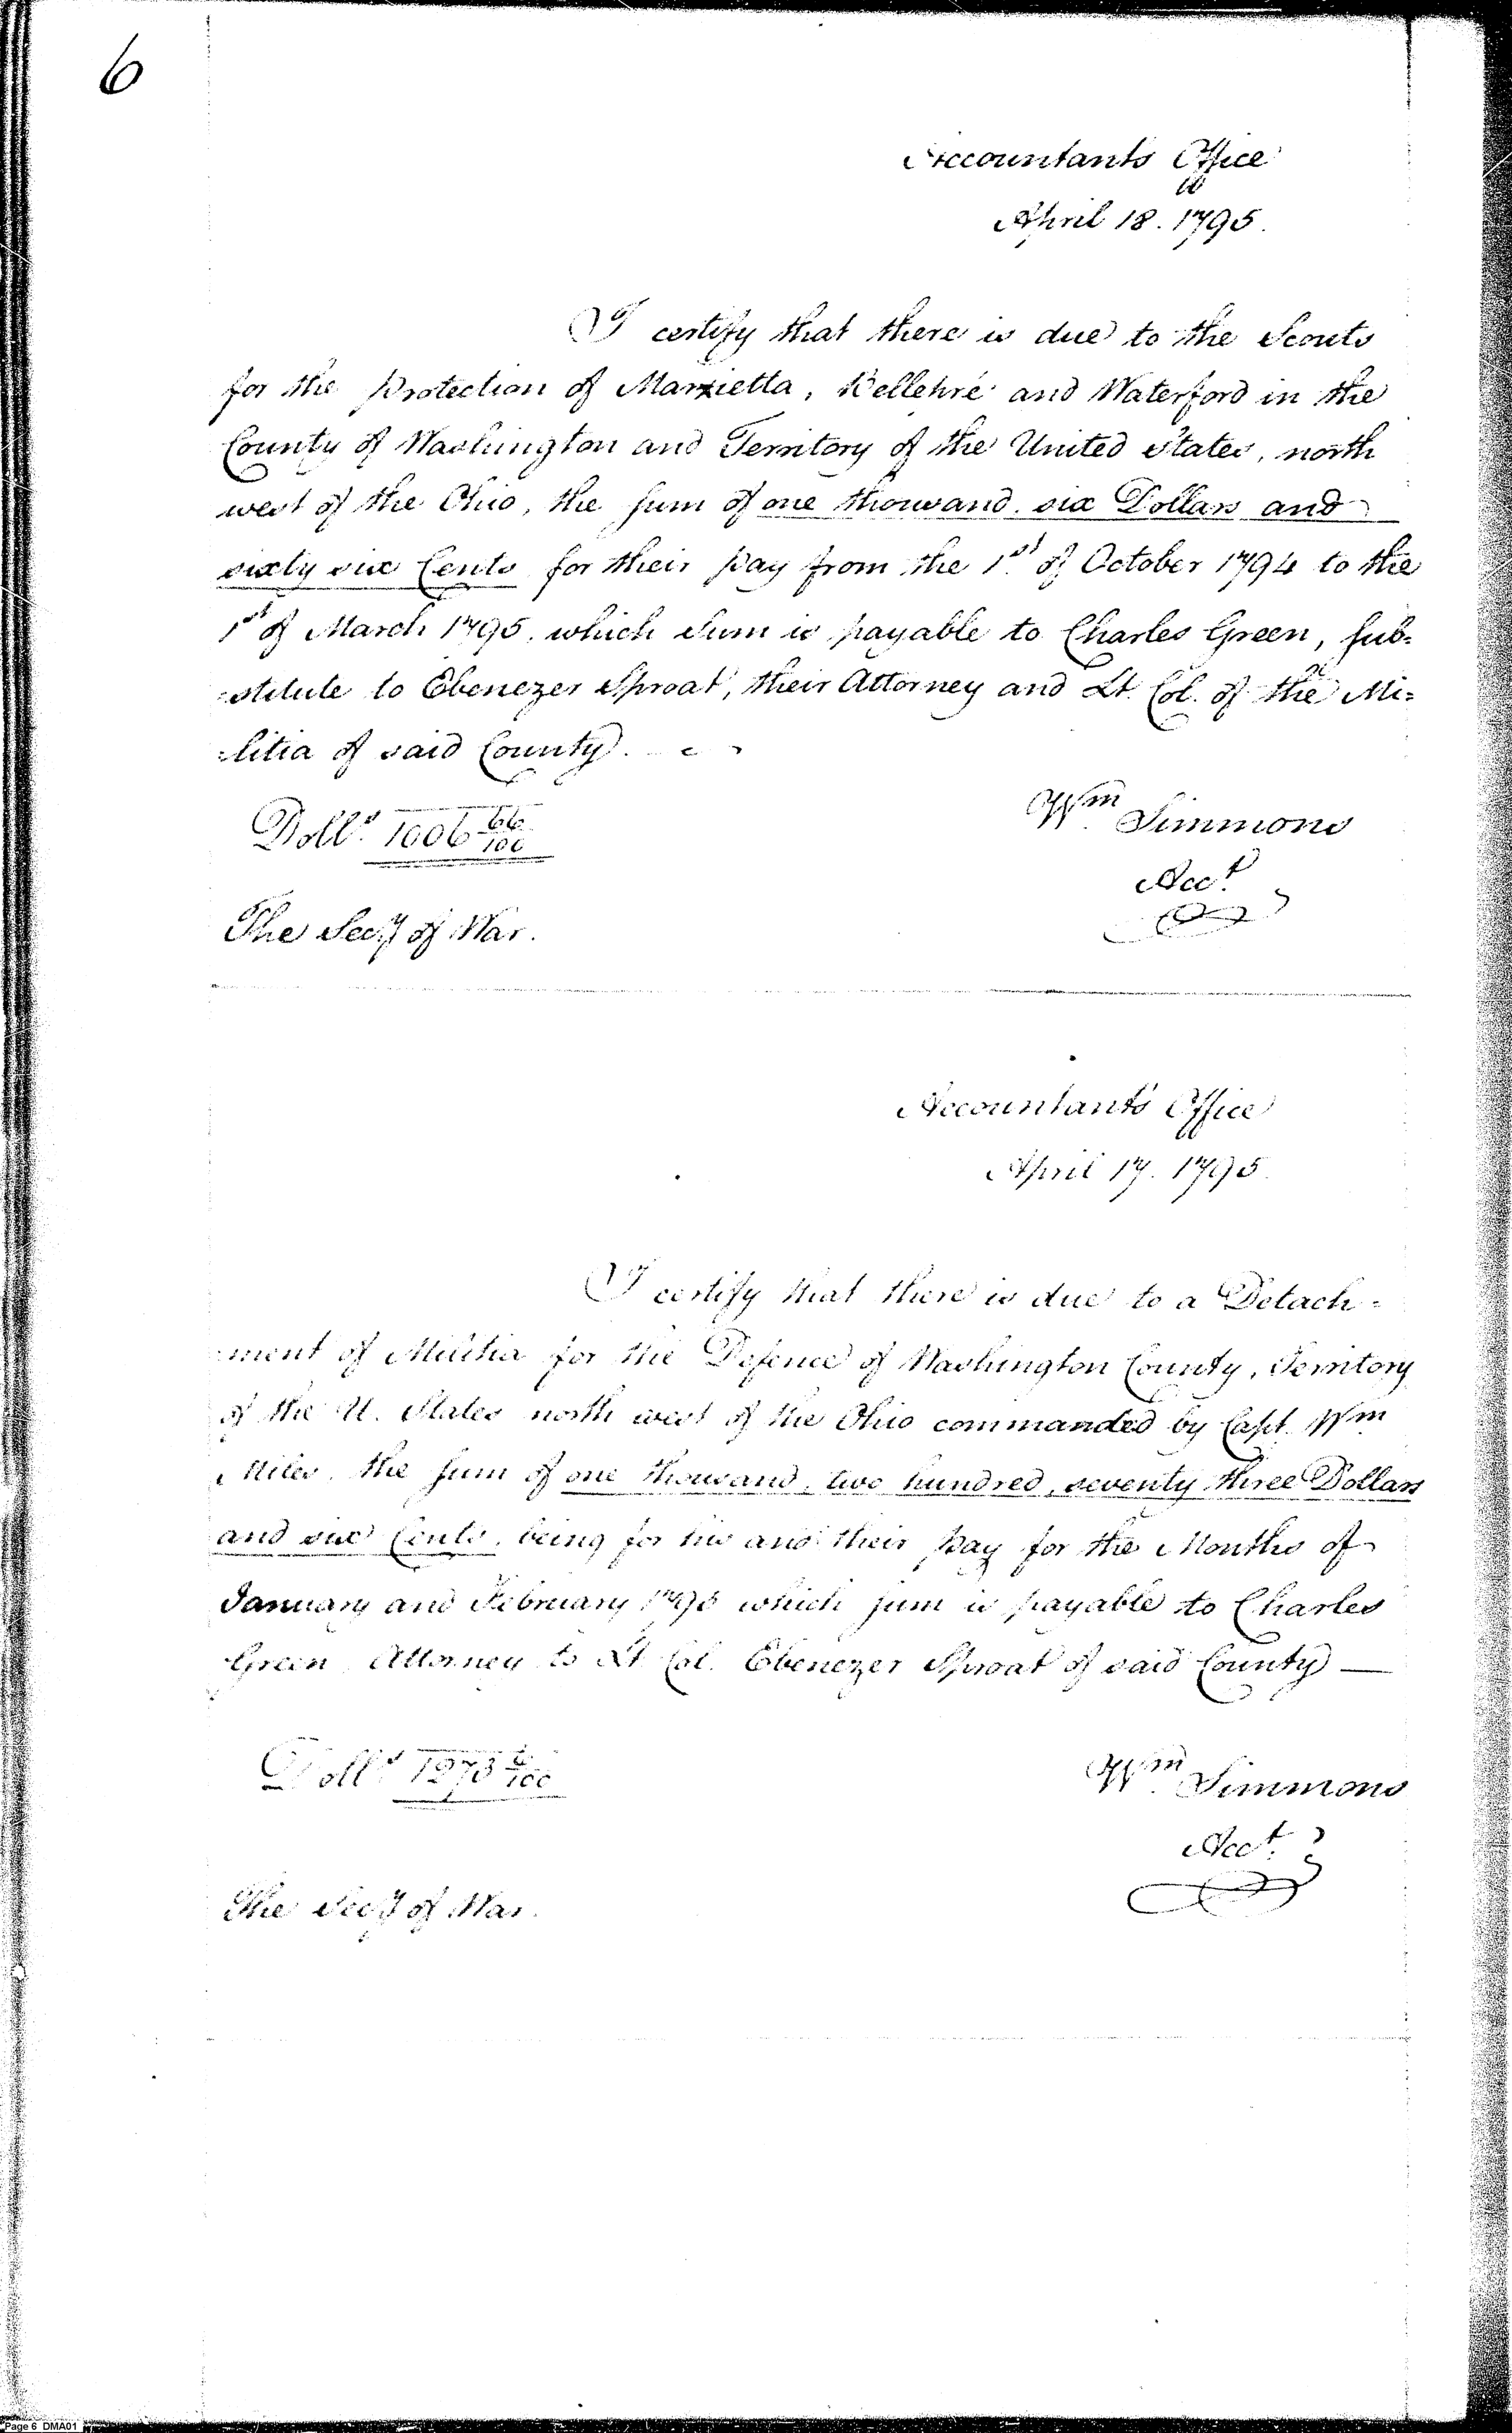 6
Accountants Office
April 18. 1795.
I certify that there is due to the Scouts
for the Protection of Marietta, Bellepré and Waterford in the
County of Washington and Territory of the United States, north
west of the Ohio, the sum of one thousand six Dollars and
sixty six Cents for their pay from the 1st of October 1794 to the
1st of March 1795. which Sum is payable to Charles Green, sub=
=stitute to Ebenezer Sproat, their Attorney and Lt. Col. of the Mi=
=litia of said County.
Dolls. 1006 66/100
Wm Simmons
Acct.
The Secy of War.
Accountants Office
April 17. 1795.
I certify that there is due to a Detach=
=ment of Militia for the Defence of Washington County, Territory
of the U. States north west of the Ohio commanded by Capt. Wm
Miles, the sum of one thousand, two hundred, seventy three Dollars
and six Cents, being for his and their pay for the Months of
January and February 1795 which sum is payable to Charles
Green Attorney to Lt Col. Ebenezer Sproat of said County —
Dolls. 1273 6/100
Wm Simmons
Acct.
The Secy of War.
Page 6 DMA01